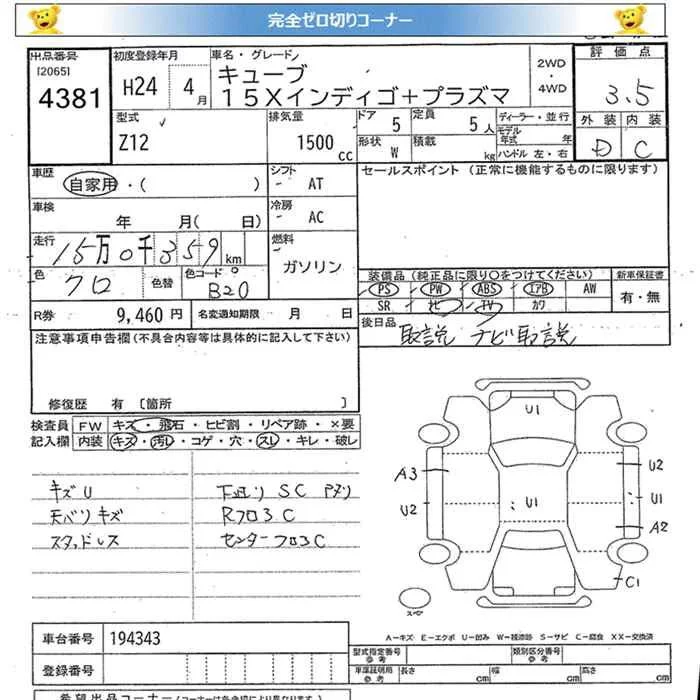 完全ゼロ切りコーナー
出品番号 初度登録年月 車名・グレード 2WD・4WD 評価点
[2065]
4381 H24 4月 キューブ 3.5
15Xインディゴ+プラズマ
型式 排気量 ドア 5 定員 5人 ディーラー・並行 外装 内装
Z12 1500cc 形状 W 積載 kg モデル年式 年 D C
ハンドル 左・右
車歴 自家用・( ) シフト AT セールスポイント (正常に機能するものに限ります)
車検 年 月( 日) 冷房 AC
走行 15万0千359km 燃料
ガソリン
色 クロ 色替 色コード B20 装備品(純正品に限り○をつけてください) 新車保証書
PS PW ABS エアB AW 有・無
SR ナビ TV カワ
R券 9,460円 名変通知期限 月 日 後日品
取説 ナビ取説
注意事項申告欄(不具合内容等は具体的に記入して下さい)
修復歴 有 〔箇所 〕
検査員 FW キズ・飛石・ヒビ割・リペア跡・×要
記入欄 内装 キズ・汚レ・コゲ・穴・スレ・キレ・破レ
キズU
天ベリキズ
スタッドレス
下廻りSC
RフロアC
センターフロアC
U1
A3 U2
U2 U1 U1
A2
C1
スペア
A-キズ E-エクボ U-凹み W-補修跡 S-サビ C-腐食 XX-交換済
車台番号 194343 型式指定番号 参考 類別区分番号 参考
登録番号 車庫証明用 参考 長さ cm 幅 cm 高さ cm